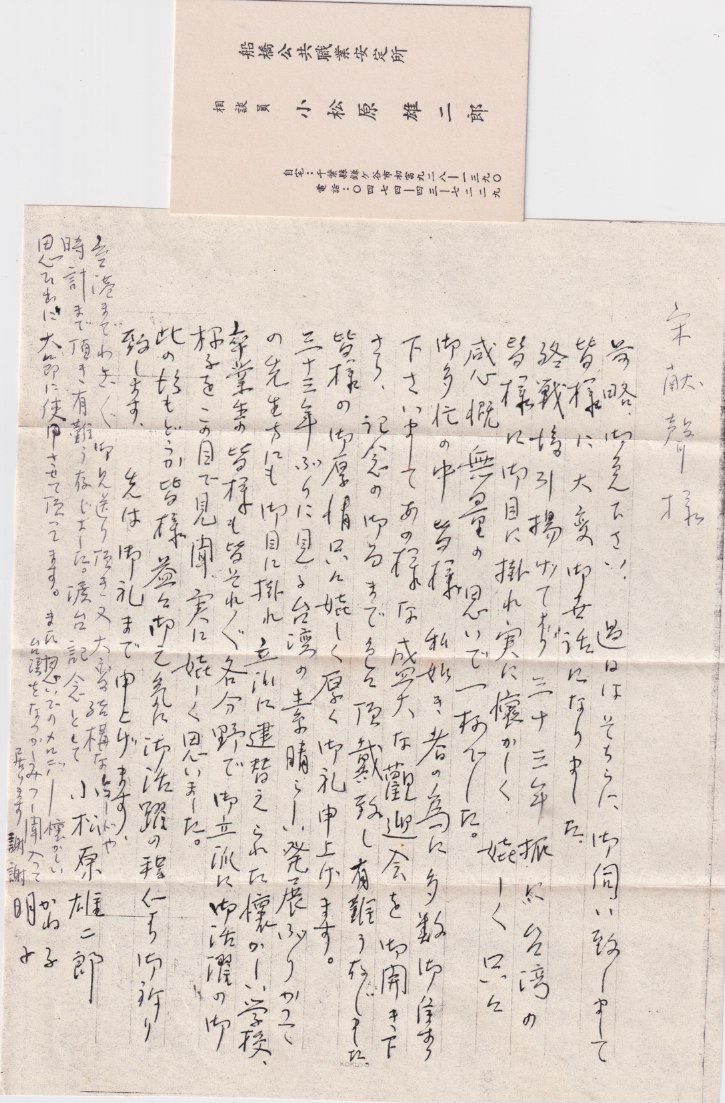 船橋公共職業安定所
相談員 小松原 雄二郎
自宅:千葉縣鎌ケ谷市初富九二八ー一三九〇
電話:〇四七四ー四三ー七二二九
宋献聲様
前略御免下さい、過日はそちらに御伺い致しまして
皆様に大変御世話になりました。
終戦后引揚げて三十三年振に台湾の
皆様に御目に掛れ実に懐かしく嬉しく只々
感慨無量の思いで一杯でした。
御多忙の中皆様私如き者の為に多数御集り
下さいましてあの様な盛大な觀迎会を御開き下
さり、記念の御品まで色々頂戴致し有難う存じました
皆様の御厚情只々嬉しく厚く御礼申上げます。
三十三年ぶりに見る台湾の素晴らしい発展ぶりかつて
の先生方にも御目に掛れ立派に建替えられた懐かしい学校、
卒業生の皆様も皆それぞれ各分野で御立派に御活躍の御
様子をこの目で見聞実に嬉しく思いました。
此の后もどうか皆様益々御元気に御活躍の程心から御祈り
致します。先は御礼まで申上げます。
小松原雄二郎
かね子
明子
空港までわざわざ御見送り頂き又大変結構な
時計まで頂き有難う存じました。渡台記念として
思い出に大節に使用させて頂ってます。また想いでのメロデー懐かしい
台湾をなつかしみつつ聞入って
居ります 謝謝